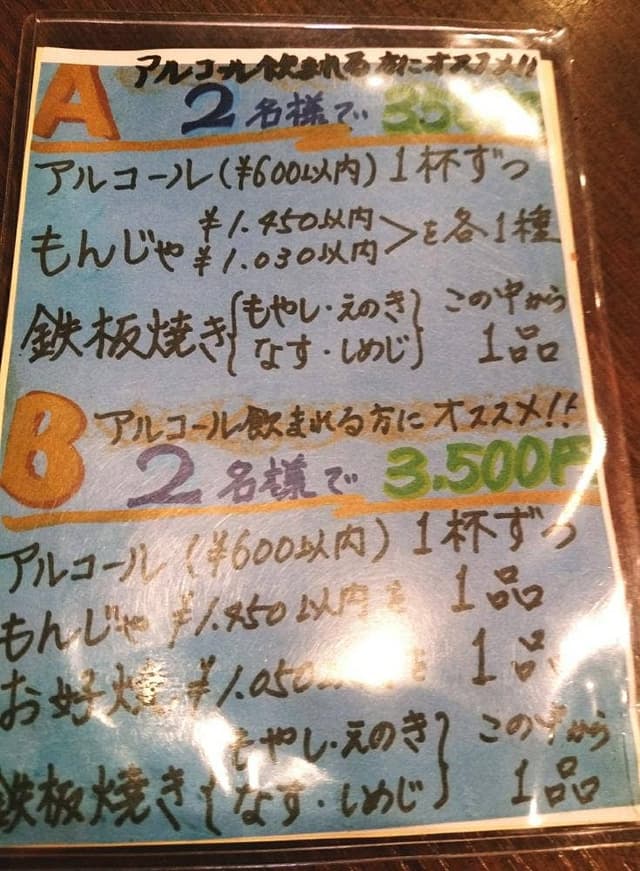 A アルコール飲まれる方にオススメ!!
2名様で 3.50
アルコール(¥600以内)1杯ずつ
もんじゃ ¥1.450以内 ¥1.030以内 >を各1種
鉄板焼き{もやし・えのき なす・しめじ}この中から1品
B アルコール飲まれる方にオススメ!!
2名様で 3.500円
アルコール(¥600以内)1杯ずつ
もんじゃ ¥1.450以内を 1品
お好焼 ¥1.050 を 1品
鉄板焼き{もやし・えのき なす・しめじ}この中から1品